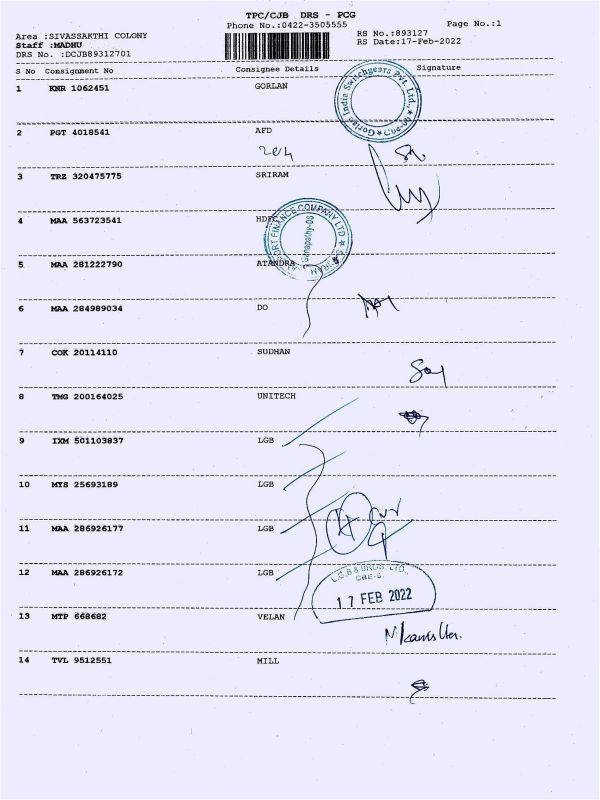 TPC/CJB DRS - PCG
Phone No.:0422-3505555
Page No.:1
Area :SIVASSAKTHI COLONY
RS No.:893127
Staff :MADHU
RS Date:17-Feb-2022
DRS No. :DCJB89312701
S No Consignment No Consignee Details Signature
1 KNR 1062451 GORLAN
Gorlan India Switchgears Pvt. Ltd.,
2 PGT 4018541 AFD
3 TRZ 320475775 SRIRAM
4 MAA 563723541 HDFC
FINANCE COMPANY LTD
Ganapathy-06
5 MAA 281222790 ATANDRA
6 MAA 284989034 DO
7 COK 20114110 SUDHAN
8 TMG 200164025 UNITECH
9 IXM 501103837 LGB
10 MYS 25693189 LGB
11 MAA 286926177 LGB
12 MAA 286926172 LGB
L.G.B & BROS. LTD.,
CBE-6.
17 FEB 2022
13 MTP 668682 VELAN
14 TVL 9512551 MILL